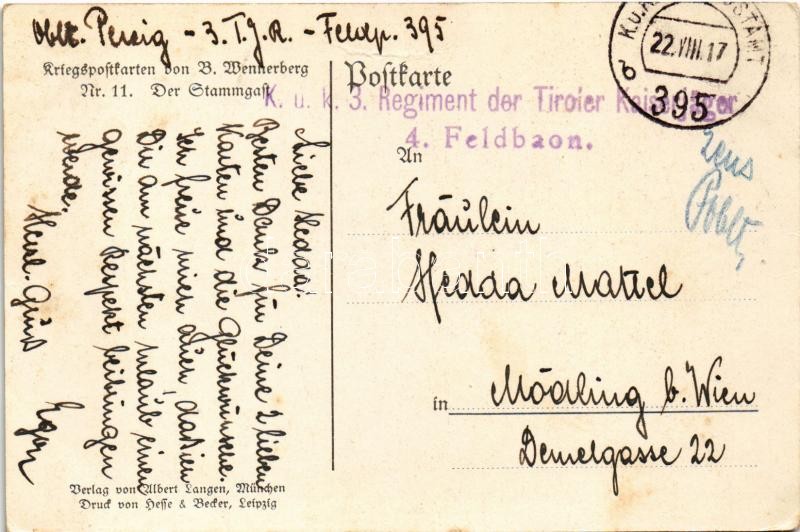 Oblt. Persig - 3. T.J.R. - Feldp. 395
Kriegspostkarten von B. Wennerberg
Nr. 11. Der Stammgast
Postkarte
22.VIII.17
b
395
K. u. k. 3. Regiment der Tiroler Kaiserjäger
4. Feldbaon.
zens
An
Fräulein
Hedda Mattel
in Mödling b. Wien
Demelgasse 22
Liebe Hedda!
Besten Dank für Deine 2 lieben
Karten und die Glückwünsche.
Ich freue mich auch, daß ich
Dir am nächsten Urlaub einen
gewissen Respekt beibringen
werde.
Herzl. Gruß
Egon
Verlag von Albert Langen, München
Druck von Hesse & Becker, Leipzig